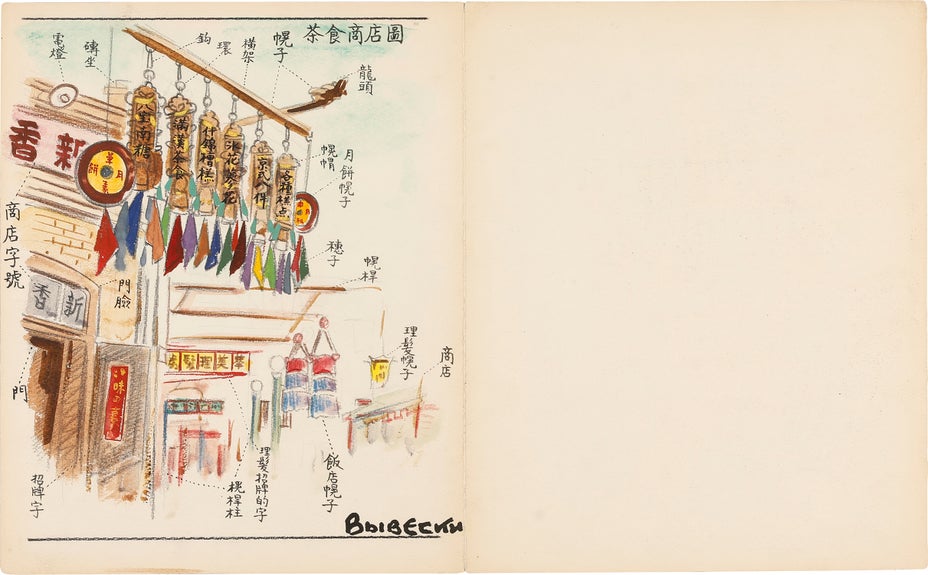 茶食商店圖
電燈
磚坐
鈎
環
橫架
幌子
龍頭
新香
月餅
八里南糖
滿漢茶食
什錦糟糕
京式八件
各種糕点
幌帽
月餅幌子
穗子
幌桿
商店字號
門臉
新香
門
理髮幌子
商店
招牌字
幌桿柱
理髮招牌的字
飯店幌子
Вывески